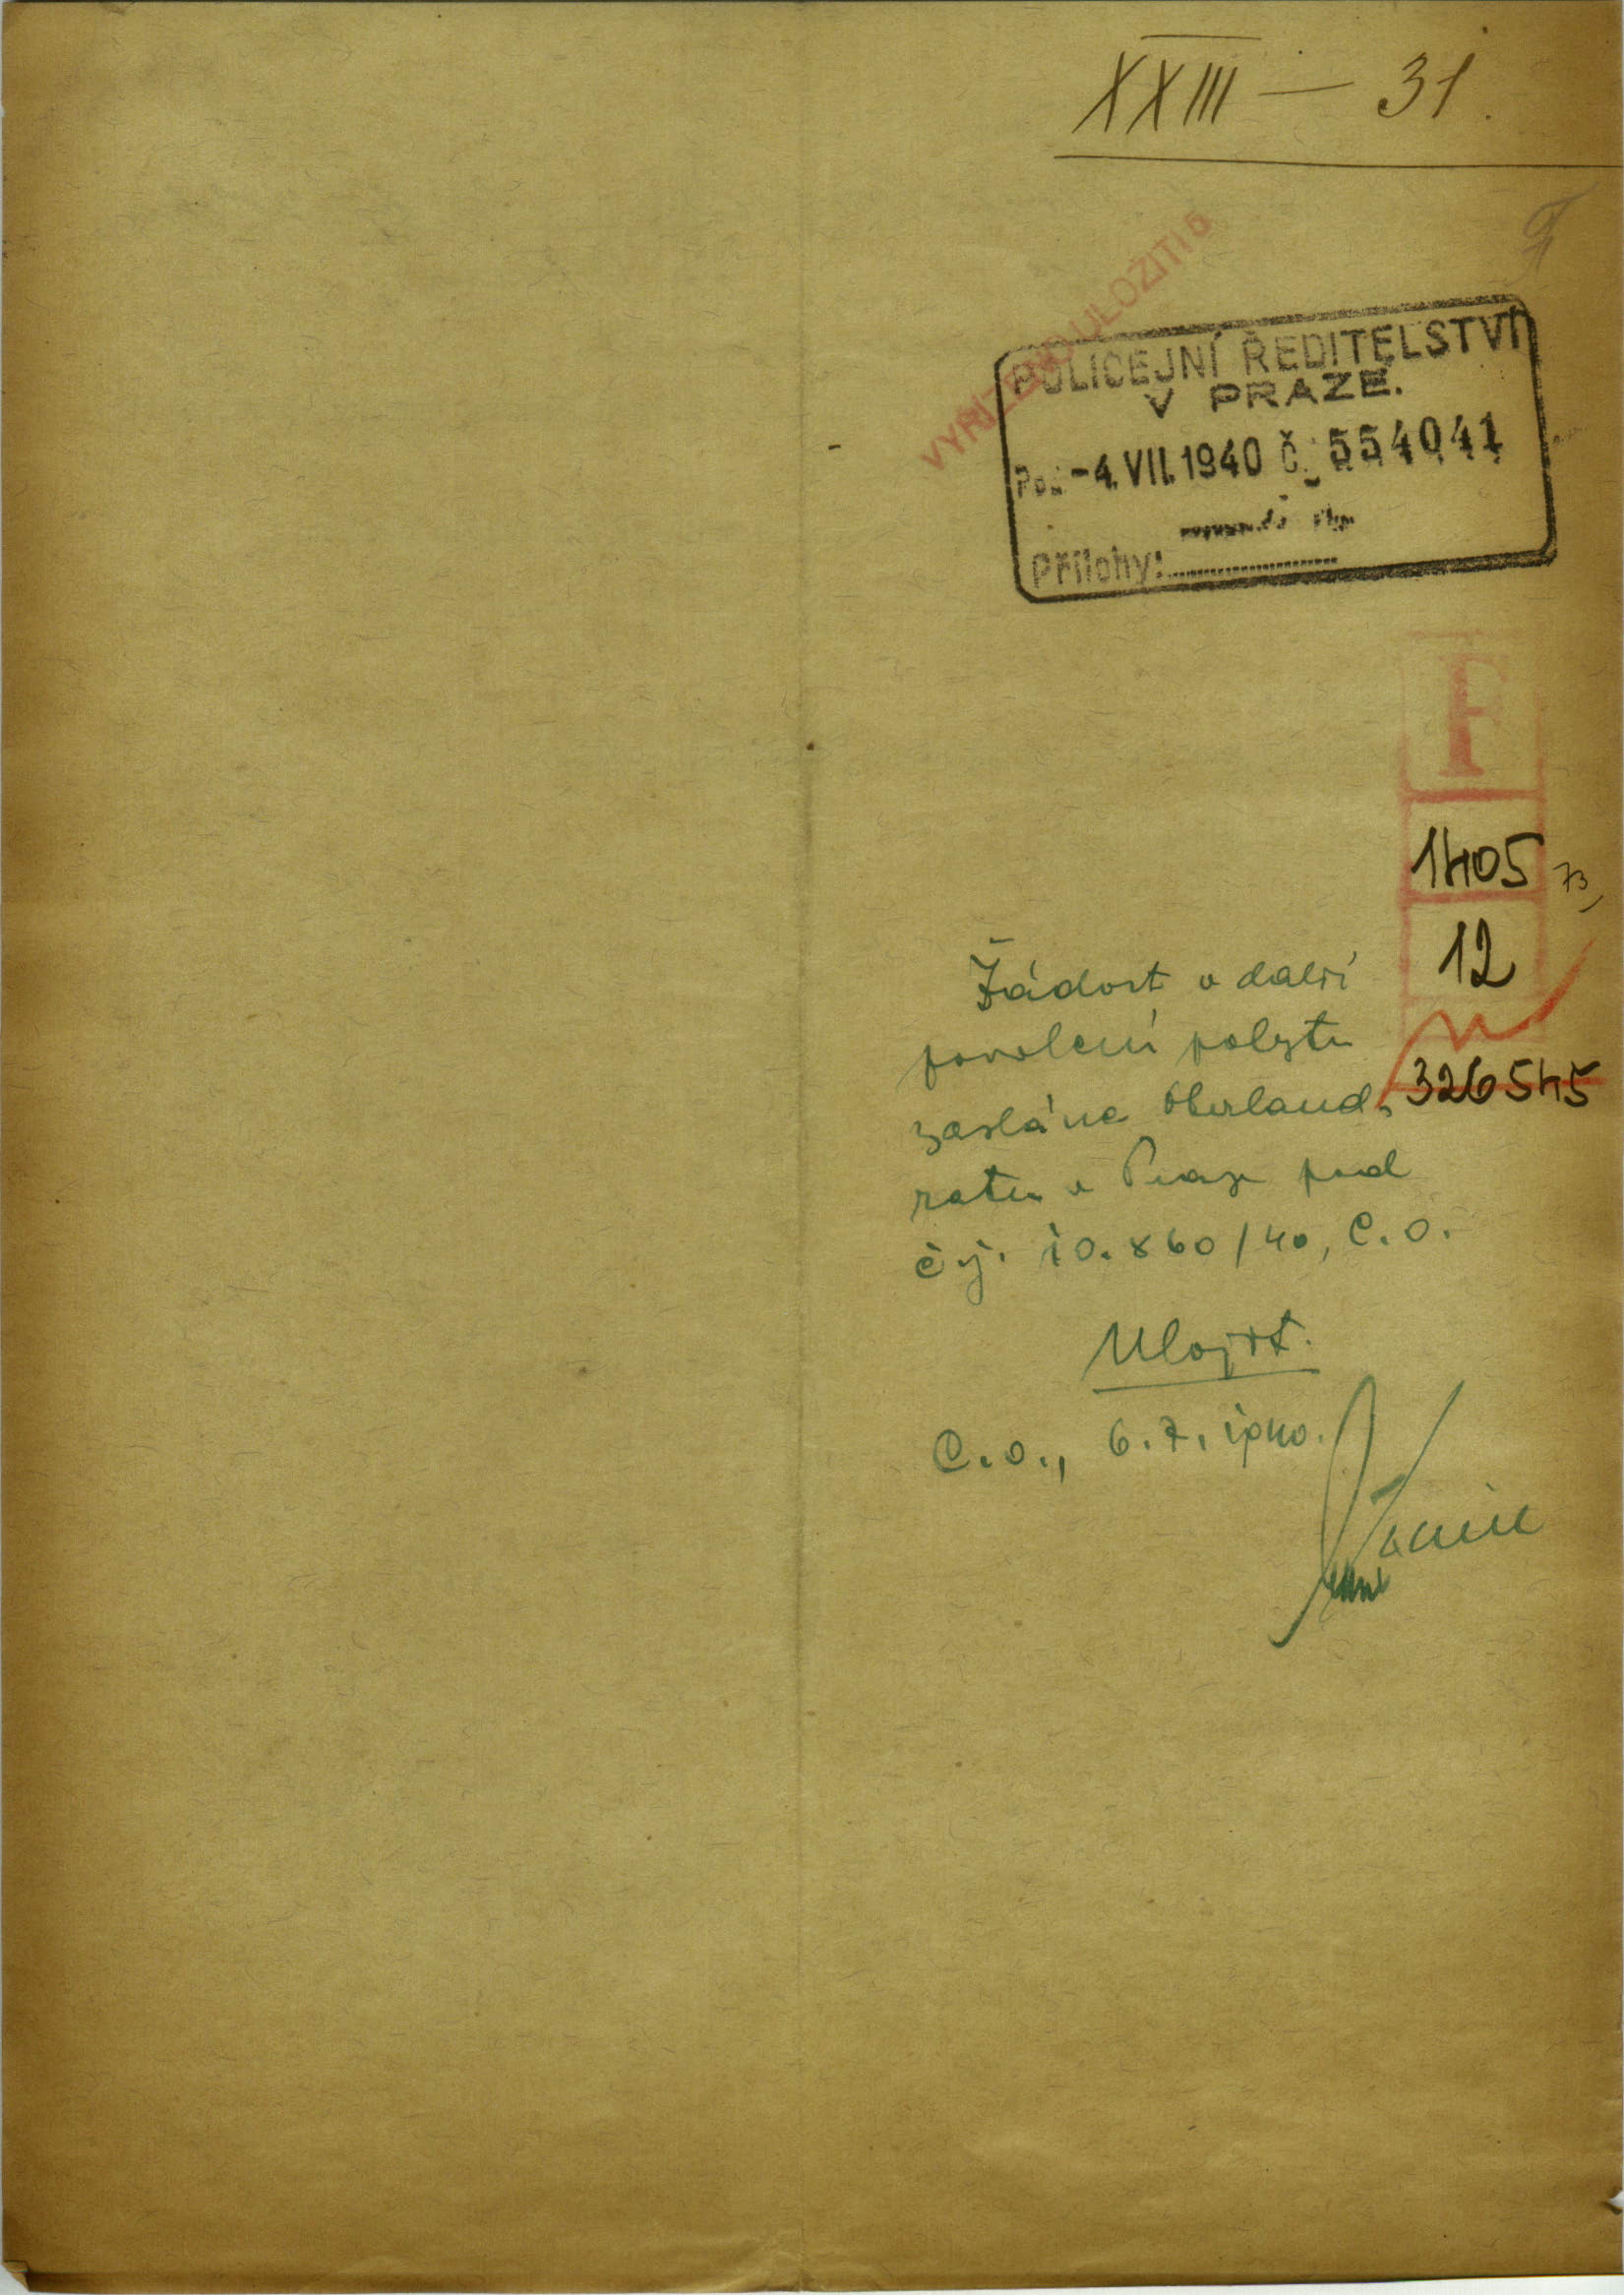 XXIII — 31.
VYŘÍZENO ULOŽITI
POLICEJNÍ ŘEDITELSTVÍ
V PRAZE.
-4. VII. 1940 Č. 554041
Přílohy:
F
1405
73
12
Žádost o další
povolení pobytu
zaslána Oberland-
326545
ratu v Praze pod
čj. 10.860/40, C.O.
Uložit.
C.O., 6.7. 1940.